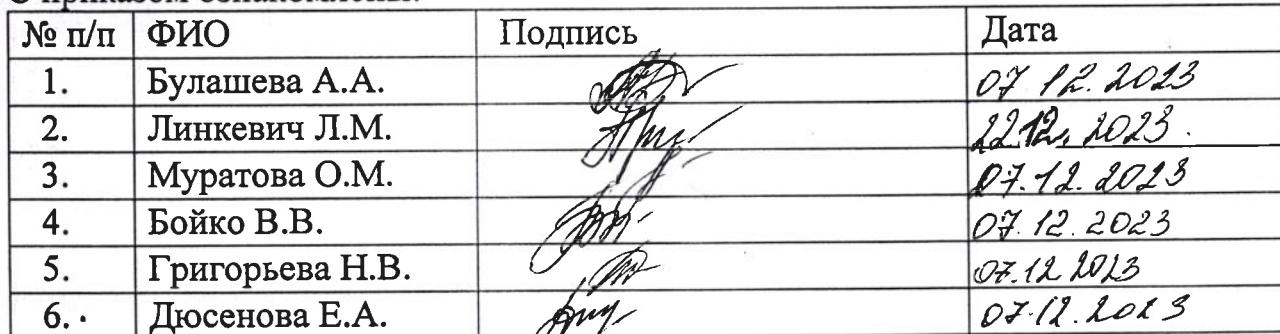 С приказом ознакомлены:
№ п/п ФИО Подпись Дата
1. Булашева А.А. 07 12. 2023
2. Линкевич Л.М. 22.12. 2023.
3. Муратова О.М. 07.12. 2023
4. Бойко В.В. 07. 12. 2023
5. Григорьева Н.В. 07.12 2023
6. Дюсенова Е.А. 07.12. 2023